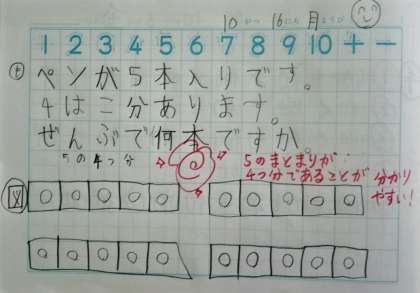 10がつ16にち月ようび
1 2 3 4 5 6 7 8 9 10 + −
も
ペンが5本入りです。
4はこ分あります。
ぜんぶで何本ですか。
5の4つ分
5のまとまりが
4つ分であることが
分かり
やすい!
図